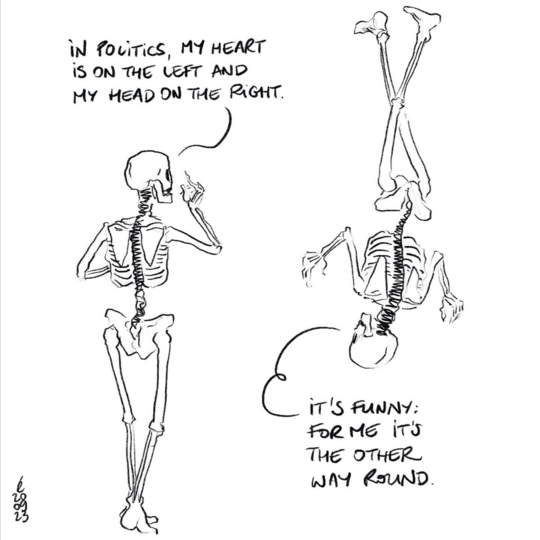 iN POLiTiCS, MY HEART
iS ON THE LEFT AND
MY HEAD ON THE RiGHT.
iT'S FUNNY:
FOR ME iT'S
THE OTHER
WAY ROUND.
é
20
09
23